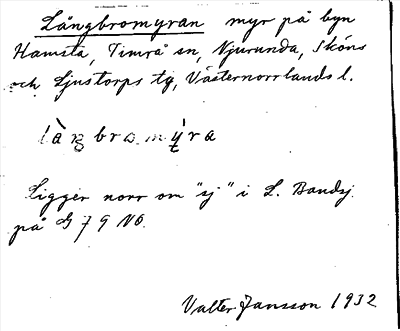 Långbromyran myr på byn
Hamsta, Timrå sn, Njurunda, Sköns
och Ljustorps tg, Västernorrlands l.
làŋbromy̌ra
Ligger norr om "sj" i L. Bandsj.
på G 79 NO.
Valter Jansson 1932